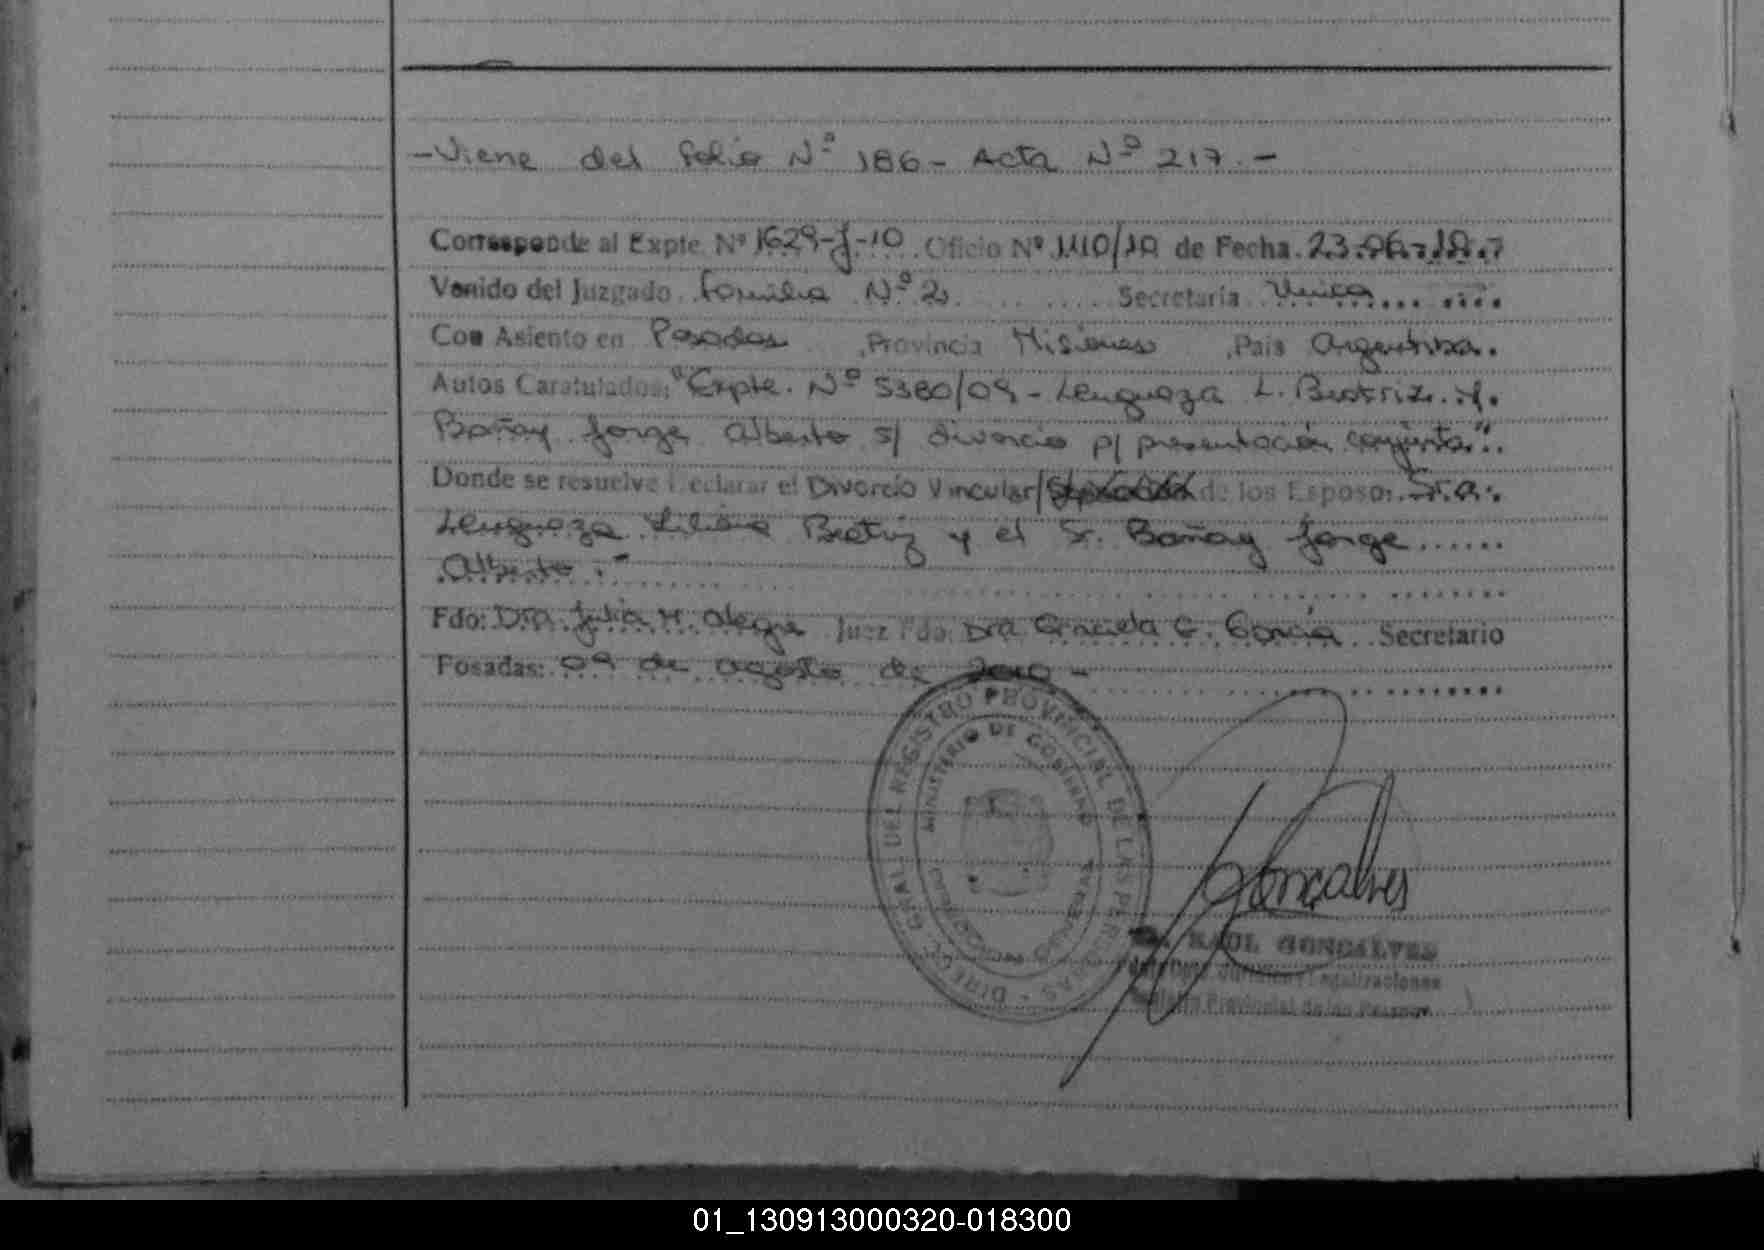 -Viene del folio Nº 186- Acta Nº 217.-
Corresponde al Expte. Nº 1629-J-10. Oficio Nº 1110/10 de Fecha. 23-06-10.-
Venido del Juzgado Familia Nº 2 Secretaría Unica
Con Asiento en Posadas ,Provincia Misiones ,Pais Argentina.
Autos Caratulados: "Expte. Nº 5380/09- Lenguaza L. Beatriz y.
Bañay Jorge Alberto s/ divorcio p/ presentación conjunta".
Donde se resuelve Declarar el Divorcio Vincular/ de los Esposos Sra.
Lenguaza Liliana Beatriz y el Sr. Bañay Jorge
Alberto.-
Fdo: Dra. Julia H. Alegre Juez Fdo: Dra Graciela G. García Secretario
Posadas: 09 de agosto de 2010-
DIRECC. GRAL. DEL REGISTRO PROVINCIAL DE LAS PERSONAS
MINISTERIO DE GOBIERNO
Goncalves
RAUL GONCALVES
Jefe Dpto. Jurídico y Legalizaciones
Registro Provincial de las Personas
01_130913000320-018300